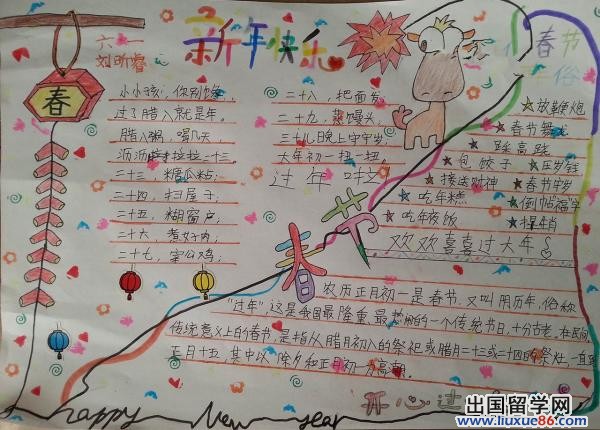 六一
刘昕睿
新年快乐
春节
俗
春
小小孩,你别馋,
过了腊八就是年。
腊八粥,喝几天,
沥沥拉拉二十三。
二十三,糖瓜粘;
二十四,扫房子;
二十五,糊窗户;
二十六,煮肉;
二十七,宰公鸡;
二十八,把面发,
二十九,蒸馒头,
三十儿晚上守守岁
大年初一扭一扭。
过年
☆放鞭炮
☆春节
☆踩高跷
☆包饺子 ☆压岁钱
☆接送财神 ☆春节守岁
☆吃年糕 ☆倒帖"福"字
☆吃年夜饭
欢欢喜喜过大年
春节
农历正月初一是春节,又叫阴历年,俗称
"过年"这是我国最隆重、最热闹的一个传统节日,十分古老。在民间,
传统意义上的春节,是指从腊月初八的祭祀或腊月二十三或二十四的祭灶,一直到
正月十五,其中以除夕和正月初一为高潮。
happy New year
开心过
出国留学网
www.liuxue86.com